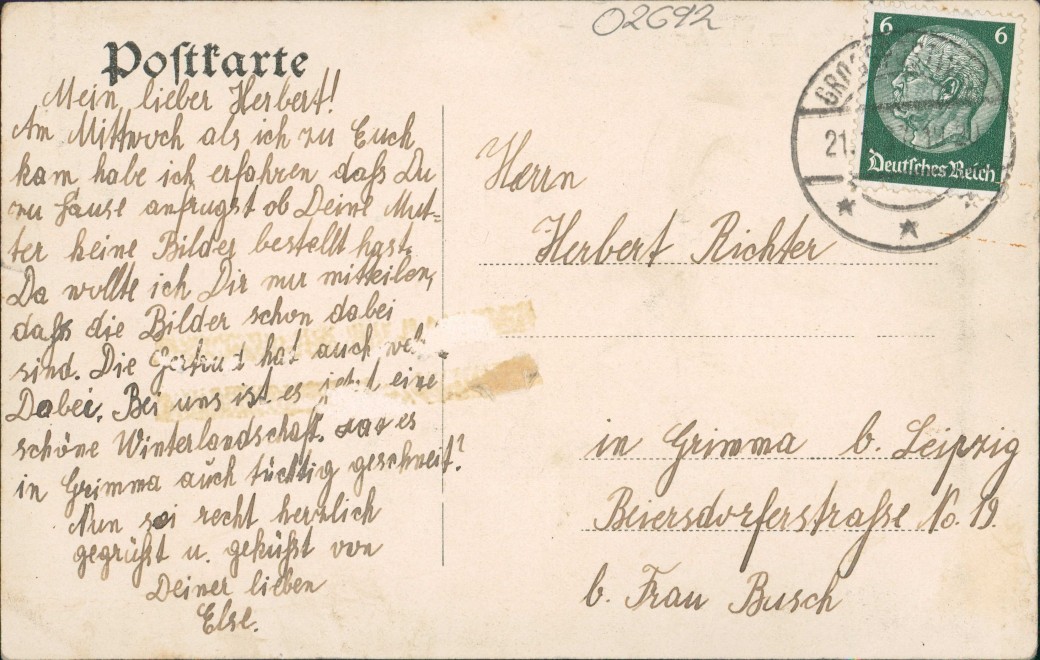 02692
Postkarte
Mein lieber Herbert!
Am Mittwoch als ich zu Euch
kam habe ich erfahren daſs Du
zu Hause anfrugst ob Deine Mut-
ter keine Bilder bestellt hast.
Da wollte ich Dir nur mitteilen,
daſs die Bilder schon dabei
sind. Die Gertrud hat auch
Dabei. Bei uns ist es jetzt eine
schöne Winterlandschaft. es
in Grimma auch tüchtig geschneit?
Nun sei recht herzlich
gegrüßt u. geküßt von
Deiner lieben
Else.
6 6
Deutsches Reich
21.
Herrn
Herbert Richter
in Grimma b. Leipzig
Beiersdorferstraſse No. 19
b. Frau Busch